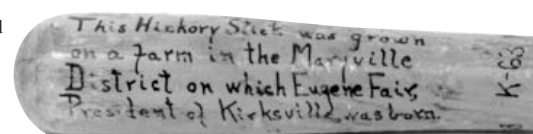 This Hickory Stick was grown
on a Farm in the Maryville
District on which Eugene Fair,
President of Kirksville was born.
K-63